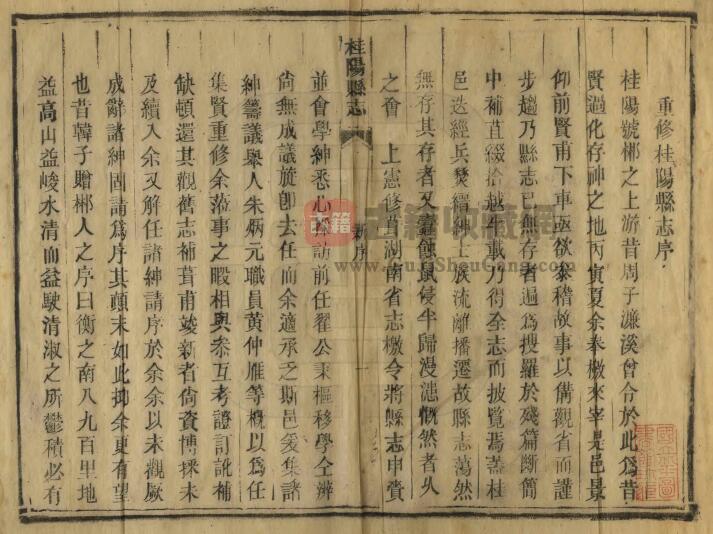 重修桂陽縣志序
桂陽號郴之上游昔周子濂溪曾令於此爲昔
賢過化存神之地丙寅夏余奉檄來宰是邑景
仰前賢甫下車亟欲叅稽故事以備觀省而謹
步趨乃縣志已無存者遍爲搜羅於殘篇斷簡
中補苴綴拾越半載力得全志而披覽焉蓋桂
邑迭經兵燹縉紳士族流離播遷故縣志蕩然
無存其存者又蠧蝕鼠侵半歸漫漶慨然者久
之會　上憲修葺湖南省志檄令將縣志申賫
桂陽縣志
新序
並會學紳悉心採訪前任翟公秉樞移學仝辨
尙無成議旋卽去任而余適承乏斯邑爰集諸
紳籌議舉人朱炳元職員黃仲雁等槪以爲任
集賢重修余蒞事之暇相與叅互考證訂訛補
缺頓還其觀舊志補葺甫竣新者尙資博採未
及續入余又解任諸紳請序於余余以未觀厥
成辭諸紳固請爲序其顛末如此抑余更有望
也昔韓子贈郴人之序曰衡之南八九百里地
益高山益峻水清而益駛清淑之所鬱積必有
古籍
古籍收藏網
www.GuJiShouCang.com